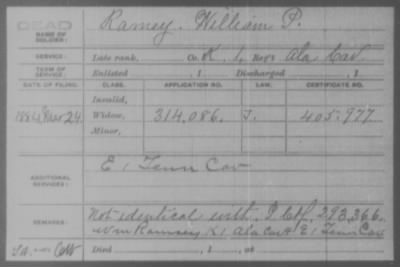 DEAD
NAME OF SOLDIER: Ramey, William P.
SERVICE: Late rank, Co. K, 1, Reg't Ala Cav
TERM OF SERVICE: Enlisted , 1 Discharged , 1
DATE OF FILING. CLASS. APPLICATION NO. LAW. CERTIFICATE NO.
Invalid,
1884 24 Widow, 314,086. J. 405,977
Minor,
ADDITIONAL SERVICES: E 1 Tenn Cav
REMARKS: Not identical with I Ctf. 293,366.
Wm Ramsey K 1 Ala Cav & E 1 Tenn Cav
Died , 1 , at